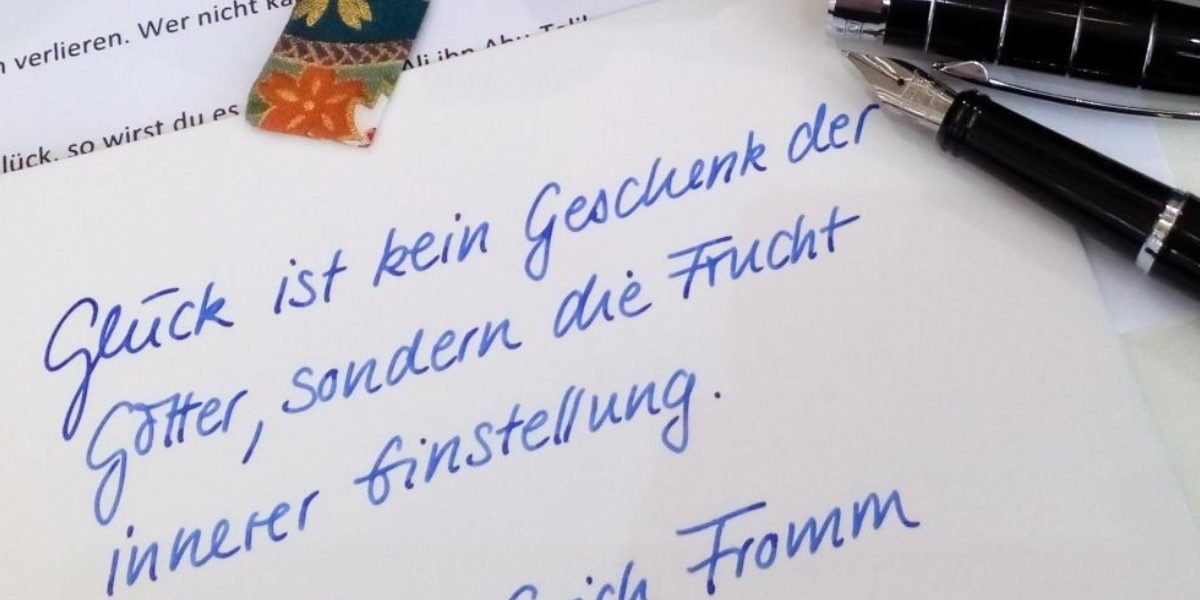 verlieren. Wer nicht
Ali ibn Abu Talib
lück, so wirst du es
Glück ist kein Geschenk der
Götter, sondern die Frucht
innerer Einstellung.
Erich Fromm